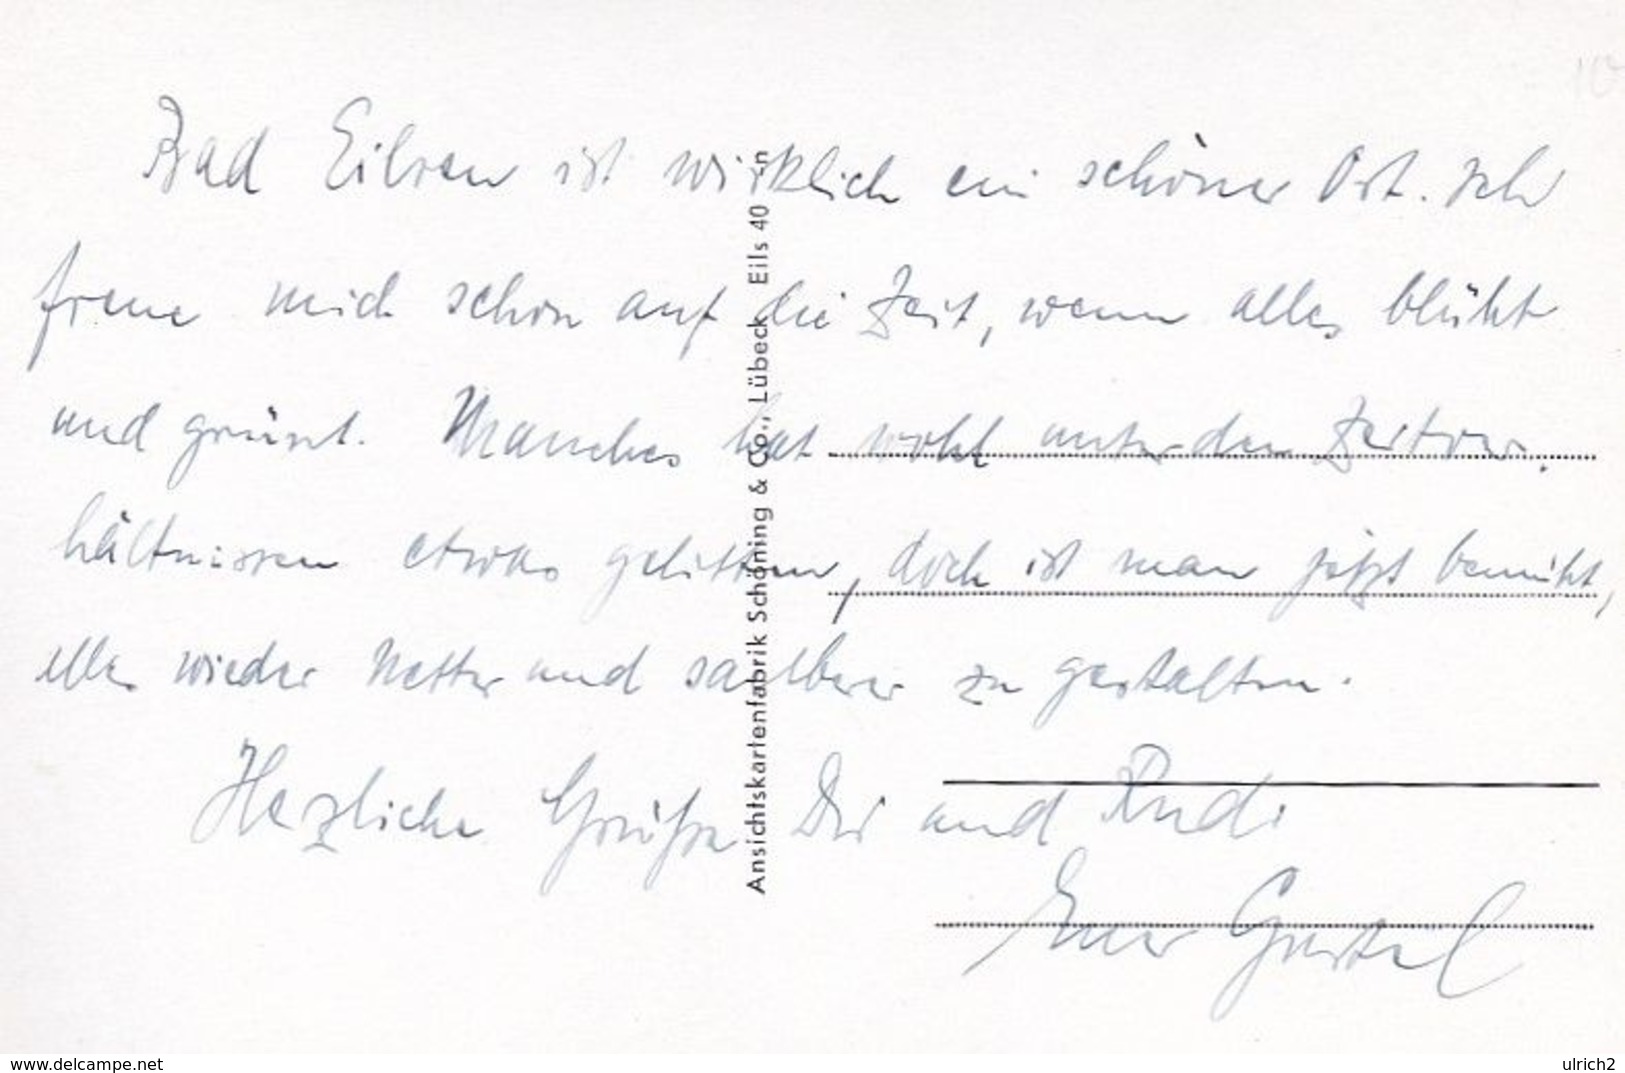 Bad Eilsen ist wirklich ein schöner Ort. Ich
freue mich schon auf die Zeit, wenn alles blüht
und grünt. Manches hat wohl unter den Zeitver-
hältnissen etwas gelitten, doch ist man jetzt bemüht,
alles wieder netter und sauberer zu gestalten.
Herzliche Grüße Dir und Rudi
Euer Gustel
Ansichtskartenfabrik Schöning & Co., Lübeck Eils 40 n
10
delcampe.net
ulrich2